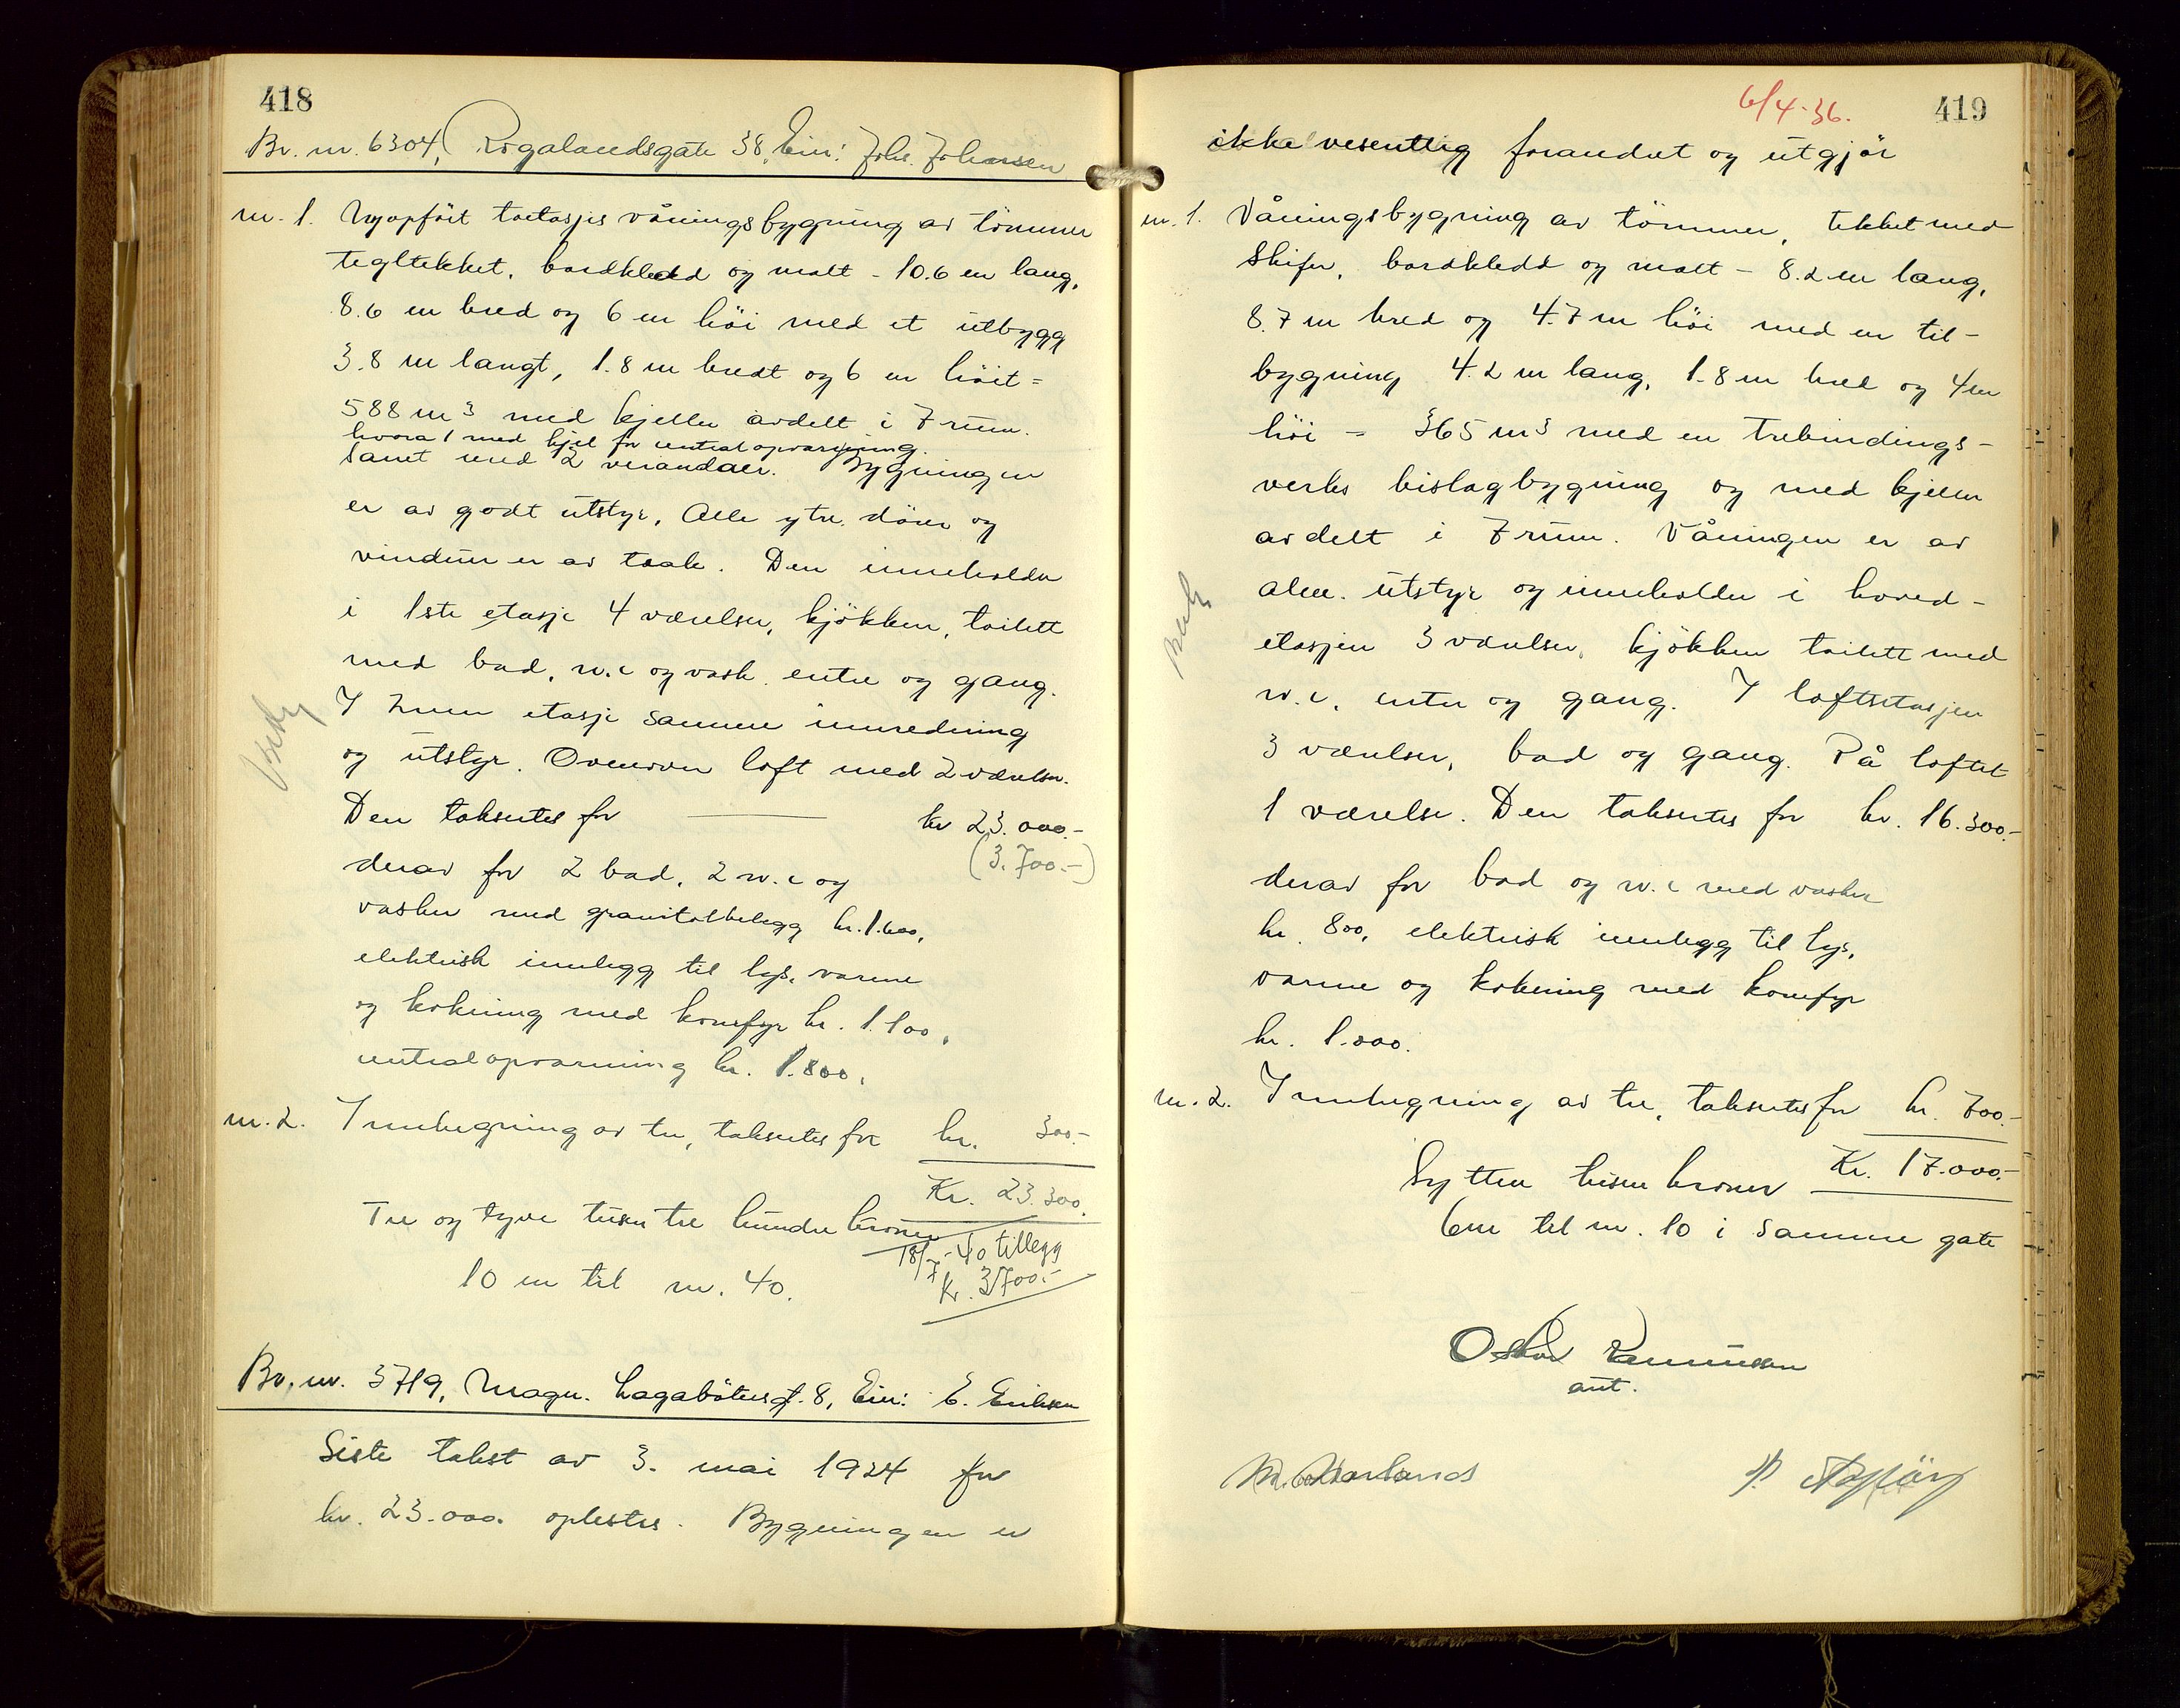 418
Br. nr. 6304, Rogalandsgate 38, Eier: Johs. Johansen
nr. 1. Nyopført toetasjes våningsbygning av tömmer
tegltekket, bordkledd og malt - 10.6 m lang,
8.6 m bred og 6 m höi med et utbygg
3.8 m langt, 1.8 m bredt og 6 m höit =
588 m3 med kjeller avdelt i 7 rum.
hvora 1 med kjel for centralopvarmning.
samt med 2 verandaer. Bygningen
er av godt utstyr. Alle ytre dörer og
vinduer er av teak. Den inneholder
i 1ste etasje 4 værelser, kjökken, toilett
med bad, w.c og vask. entre og gang.
I 2nen etasje samme innredning
og utstyr. Ovenover loft med 2 værelser.
Den takseres for kr 23.000.-
(3.700.-)
derav for 2 bad, 2 w.c og
vasker med granitolbelegg kr. 1.600,
elektrisk innlegg til lys, varme
og kokning med komfyr kr. 1.100,
centralopvarming kr. 1.800,
nr. 2. Innhegning av tre, takseres for kr. 300.-
Kr. 23.300.
Tre og tyve tusen tre hundre kroner
18/7-40 tillegg
kr. 3700.-
10 m til nr. 40.
Br. nr. 3719, Magn. Lagabötersgt. 8, Eier: E. Eriksen
Siste takst av 3. mai 1924 for
kr. 23.000. oplestes. Bygningen er
6/4-36.
419
ikke vesentlig forandret og utgjör
nr. 1. Våningsbygning av tömmer, tekket med
skifer, bordkledd og malt - 8.2 m lang,
8.7 m bred og 4.7 m höi med en til-
bygning 4.2 m lang, 1.8 m bred og 4 m
höi = 365 m3 med en trebindings-
verks bislagbygning og med kjeller
avdelt i 7 rum. Våningen er av
alm. utstyr og inneholder i hoved-
etasjen 3 værelser, kjökken toilett med
w.c, entre og gang. I loftsetasjen
3 værelser, bad og gang. På loftet
1 værelse. Den takseres for kr. 16.300.-
derav for bad og w.c med vasker
kr. 800, elektrisk innlegg til lys,
varme og kokening med komfyr
kr. 1.000.
nr. 2. Innhegning av tre, takseres for kr. 700.-
Kr. 17.000.-
Sytten tusen kroner
6 m til nr. 10 i samme gate
Oskar Rasmussen
ant.